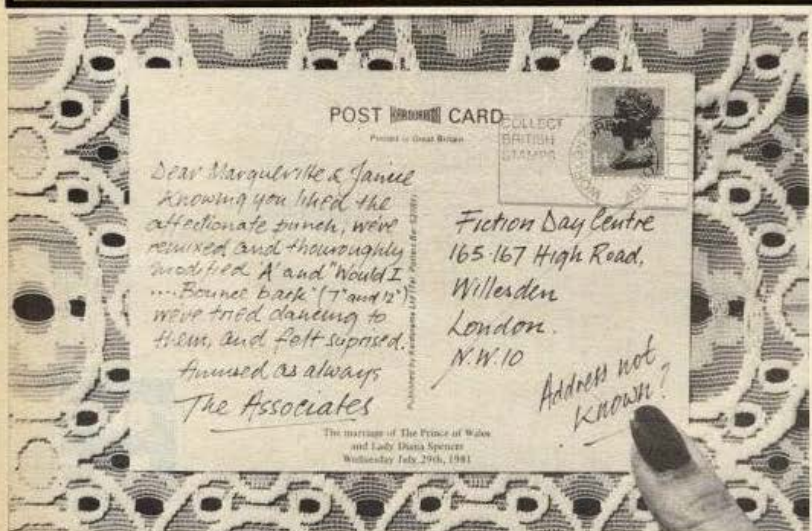 POST KARDORAMA CARD
Printed in Great Britain
COLLECT
BRITISH
STAMPS
Dear Marguerite & Janice
Knowing you liked the
affectionate punch, we've
remixed and thouroughly
modified 'A' and "Would I
....Bounce back" (7" and 12")
we've tried dancing to
them, and felt suprised.
Amused as always
The Associates
Published by Kardorama Ltd
Fiction Day Centre
165-167 High Road,
Willesden
London.
N.W.10
Address not
known?
The marriage of The Prince of Wales
and Lady Diana Spencer
Wednesday July 29th, 1981